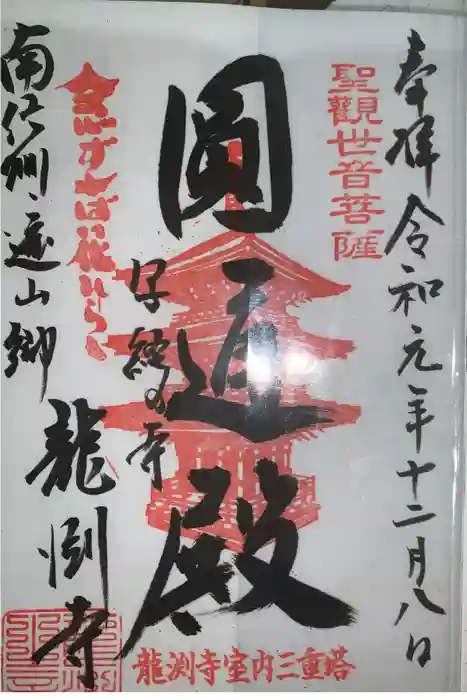 奉拝 令和元年十二月八日
聖觀世音菩薩
圓通殿
念ずれば花ひらく
南信州、遠山郷
龍淵寺
龍渕寺室内三重塔